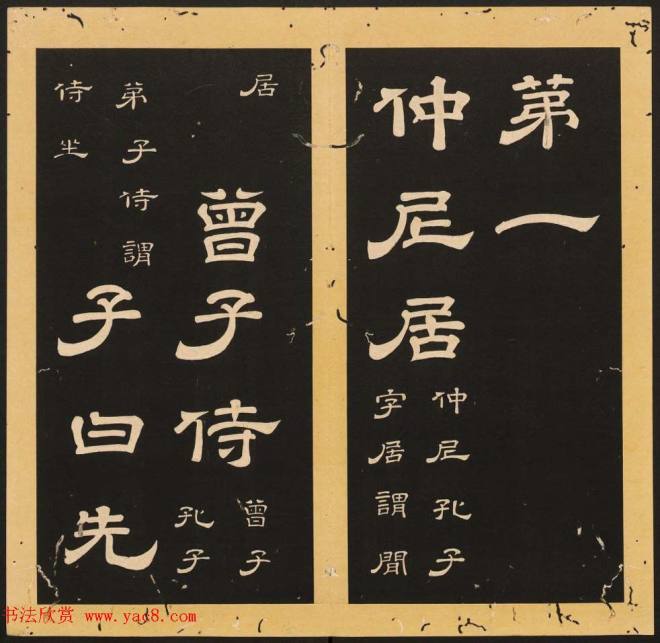 第一
仲尼居
仲尼孔子
字居謂閒
居
曾子侍
曾子
孔子
弟子侍謂
侍坐
子曰先
书法欣赏 www.yac8.com